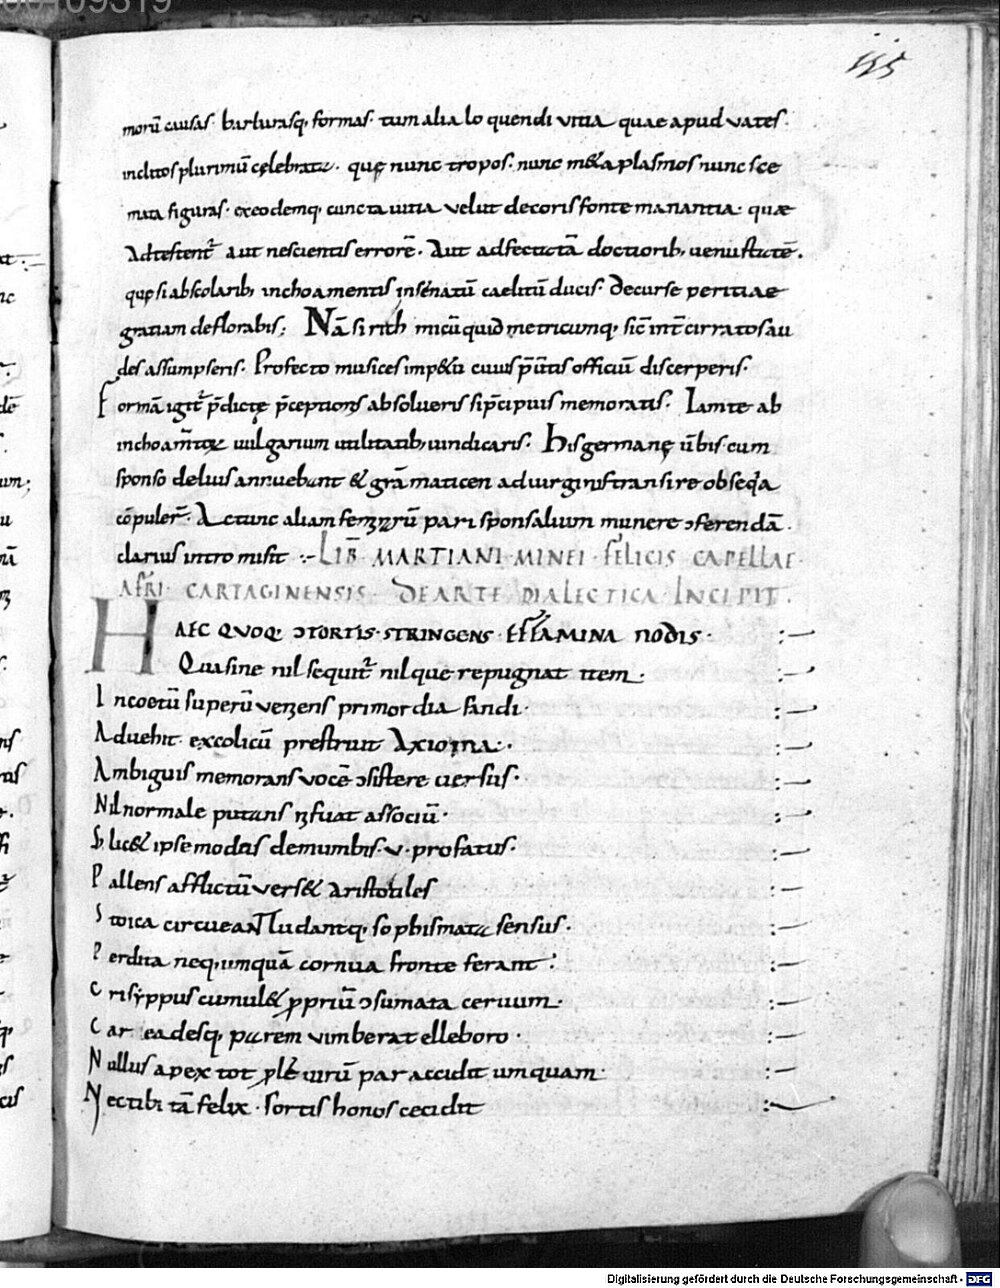 00109319
115
morū causas· barbarasq; formas· tum alia loquendi vitia quae apud vates·
inclitos plurimū cęlebrata· quę nunc tropos· nunc m&aplasmos nunc sce
mata figuras· ex eodemq; cuncta uitia velut decoris fonte manantia· quae
Adtestent᷑ aut nescientis errorē· Aut adfectatā doctiorib; uenustatē·
quę si ab scolarib; inchoamentis in senatū caelitū ducis· Decurse peritiae
gratiam deflorabis; Nā si rith micū quid metricumq; sic̄ int̄ cirratos au
des assumpseris· Profecto musices imp&u cuius p̄ītis officiū discerperis·
Formā igit᷑ p̄dictę p̄ceptionis absolueris si p̄cipuis memoratis· Iamte ab
inchoam̄tox uulgarium utilitatib; uindicaris· His germanę ūbis cum
sponso delius annuebant & grāmaticen ad uirginis transire obseq̄a
cōpuler̄· Ac tunc aliam feminarū pari sponsalium munere ɔferendā·
clarius intro misit :-LIB̄ MARTIANI·MINEI·FELICIS CAPELLAE·
AFRI·CARTAGINENSIS· DE ARTE DIALECTICA·INCIPIT·
HAEC QVOQ; ɔTORTIS·STRINGENS·EFFAMINA NODIS· :-
Qua sine nil sequit᷑ nilque repugnat item· :-
In coetū superū veniens primordia fandi· :-
Aduehit· exColicū prestruit Axioma:· :-
Ambiguis memorans vocē ɔsistere uersus· :-
Nil normale putans ni fuat associū· :-
S; lic& ipse modos demum bis·v·profatus· :-
Pallens afflictū vers& aristotiles :-
Stoica circueaNT ludantq; sophismata sensus· :-
Perdita neq; umquā cornua fronte ferant· :-
Crisyppus cumul& ꝓpriū ɔsumata ceruum· :-
Carneadesq; parem vimberat elleboro· :-
Nullus apex tot ꝓle uirū par accidit umquam· :-
Nec tibi tā felix·sortis honos cecidit :-
Digitalisierung gefördert durch die Deutsche Forschungsgemeinschaft - DFG